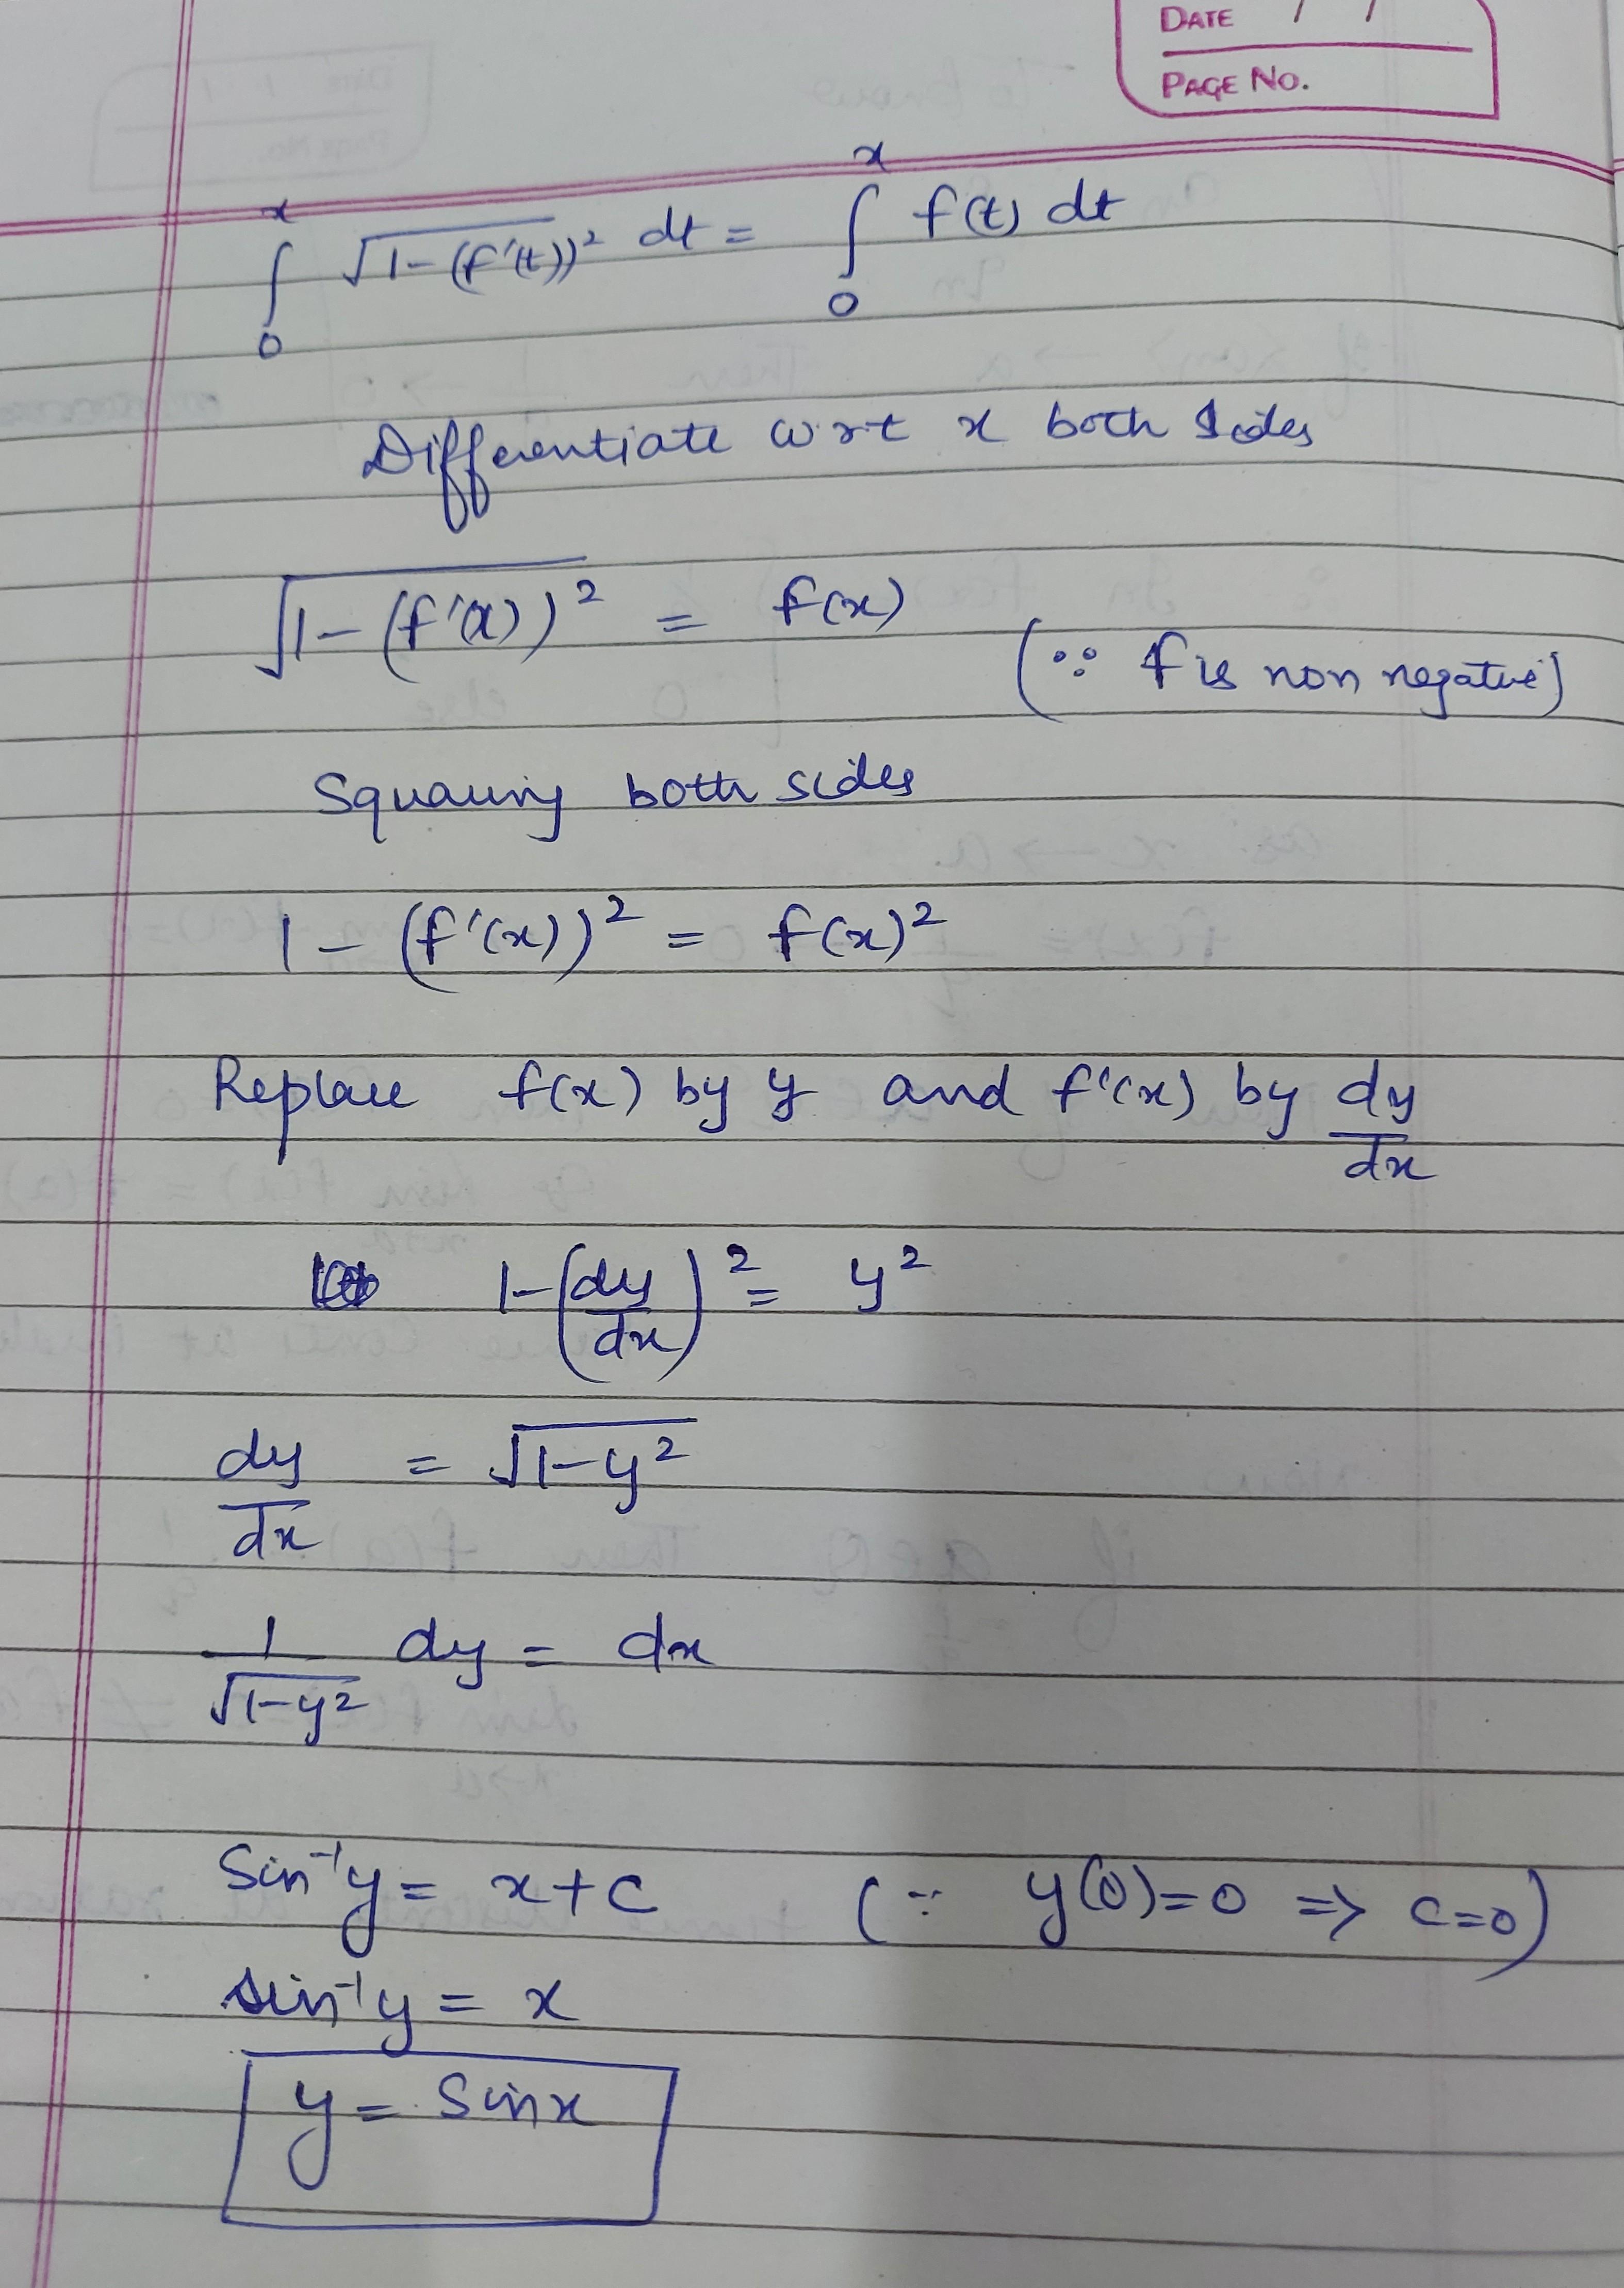 DATE / /
PAGE NO.
∫₀ˣ √1-(f'(t))² dt = ∫₀ˣ f(t) dt
Differentiate w.r.t x both sides
√1-(f'(x))² = f(x)
(∵ f is non negative)
Squaring both sides
1 - (f'(x))² = f(x)²
Replace f(x) by y and f'(x) by dy/dx
1-(dy/dx)² = y²
dy/dx = √1-y²
1/√1-y² dy = dx
Sin⁻¹y = x+c (∵ y(0)=0 ⇒ c=0)
sin⁻¹y = x
y = Sinx